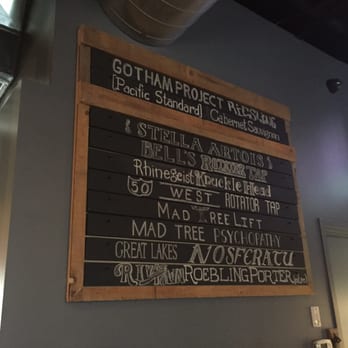 GOTHAM PROJECT RIESLING
[Pacific Standard] Cabernet Sauvignon
{ STELLA ARTOIS }
BELL'S ROTATOR TAP
Rhinegeist Knuckle Head
50 WEST ROTATOR TAP
MAD TREE LIFT
MAD TREE PSYCHOPATHY
GREAT LAKES NOSFERATU
ROEBLING PORTER